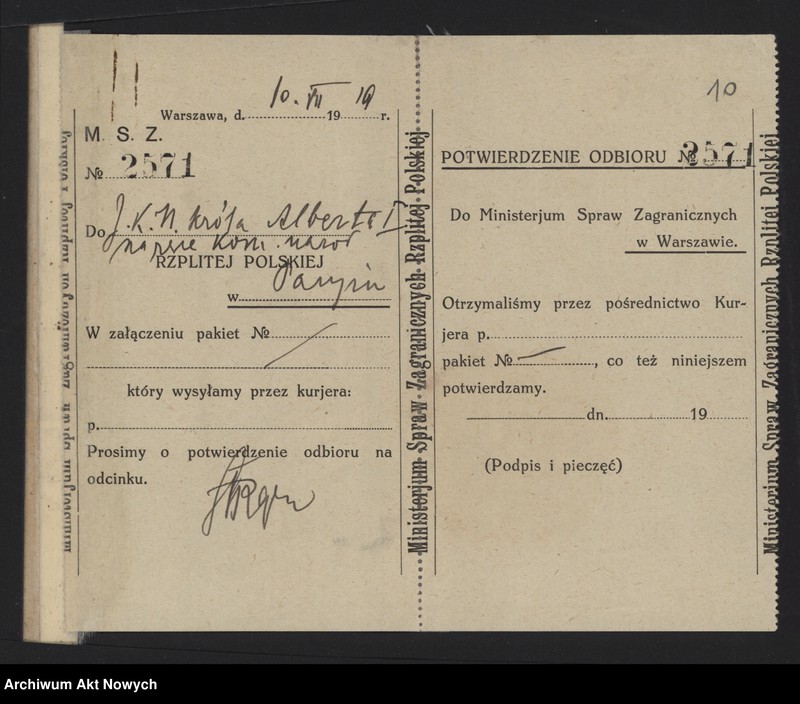 Warszawa, d. 10. VII 1919 r.
M. S. Z.
№ 2571
Do J. K. M. króla Alberta I
na ręce Kom. narod
RZPLITEJ POLSKIEJ
w Paryżu
W załączeniu pakiet №
który wysyłamy przez kurjera:
p.
Prosimy o potwierdzenie odbioru na
odcinku.
Ministerjum Spraw Zagranicznych Rzplitej Polskiej
10
POTWIERDZENIE ODBIORU № 2571
Do Ministerjum Spraw Zagranicznych
w Warszawie.
Otrzymaliśmy przez pośrednictwo Kur-
jera p.
pakiet №, co też niniejszem
potwierdzamy.
dn. 19
(Podpis i pieczęć)
Ministerjum Spraw Zagranicznych Rzplitej Polskiej
Archiwum Akt Nowych